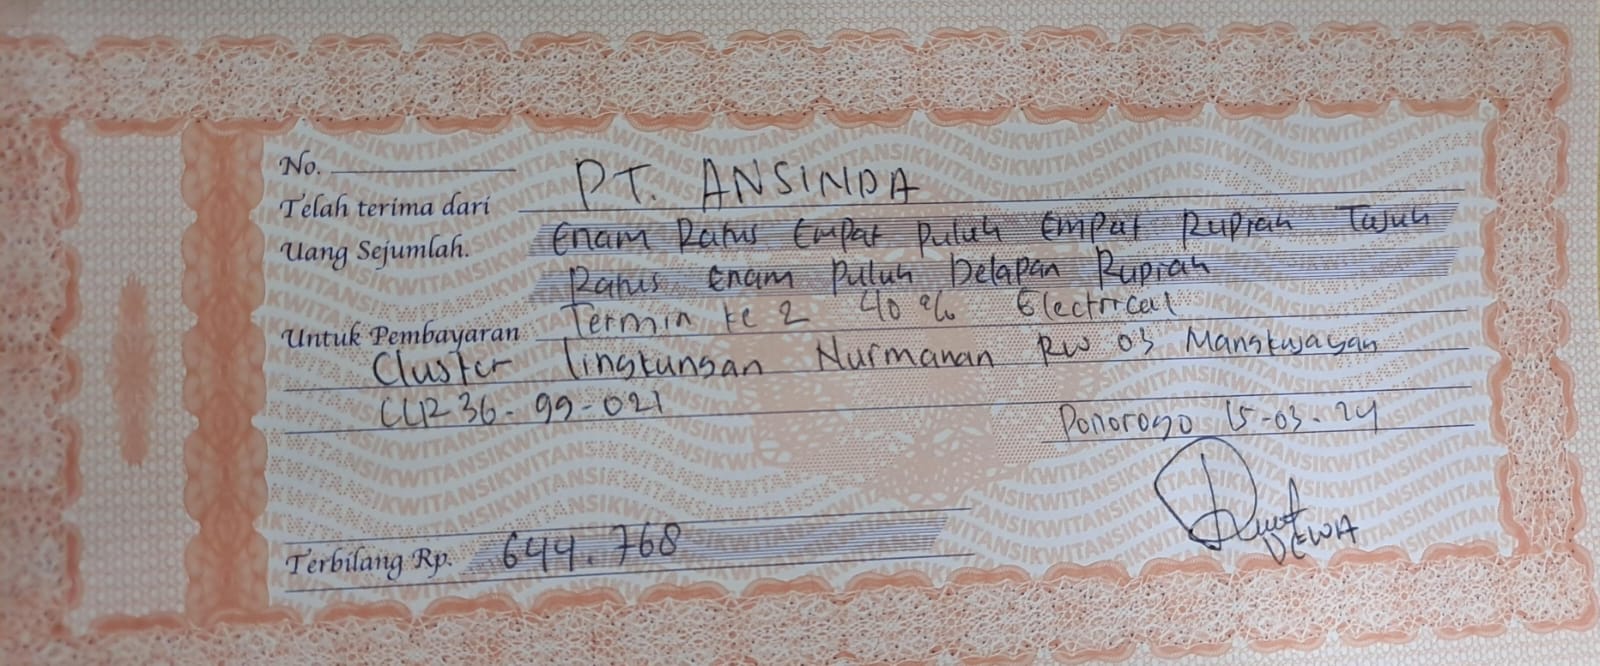 No.
Telah terima dari PT. ANSINDA
Uang Sejumlah. Enam Ratus Empat Puluh Empat Rupiah Tujuh
Ratus Enam Puluh Delapan Rupiah
Untuk Pembayaran Termin ke 2 40 % Electrical
Cluster Lingkungan Nurmanan RW 03 Mangkujayan
CLP 36-99-021
Ponorogo 15-03-24
Terbilang Rp. 644.768
DEWA